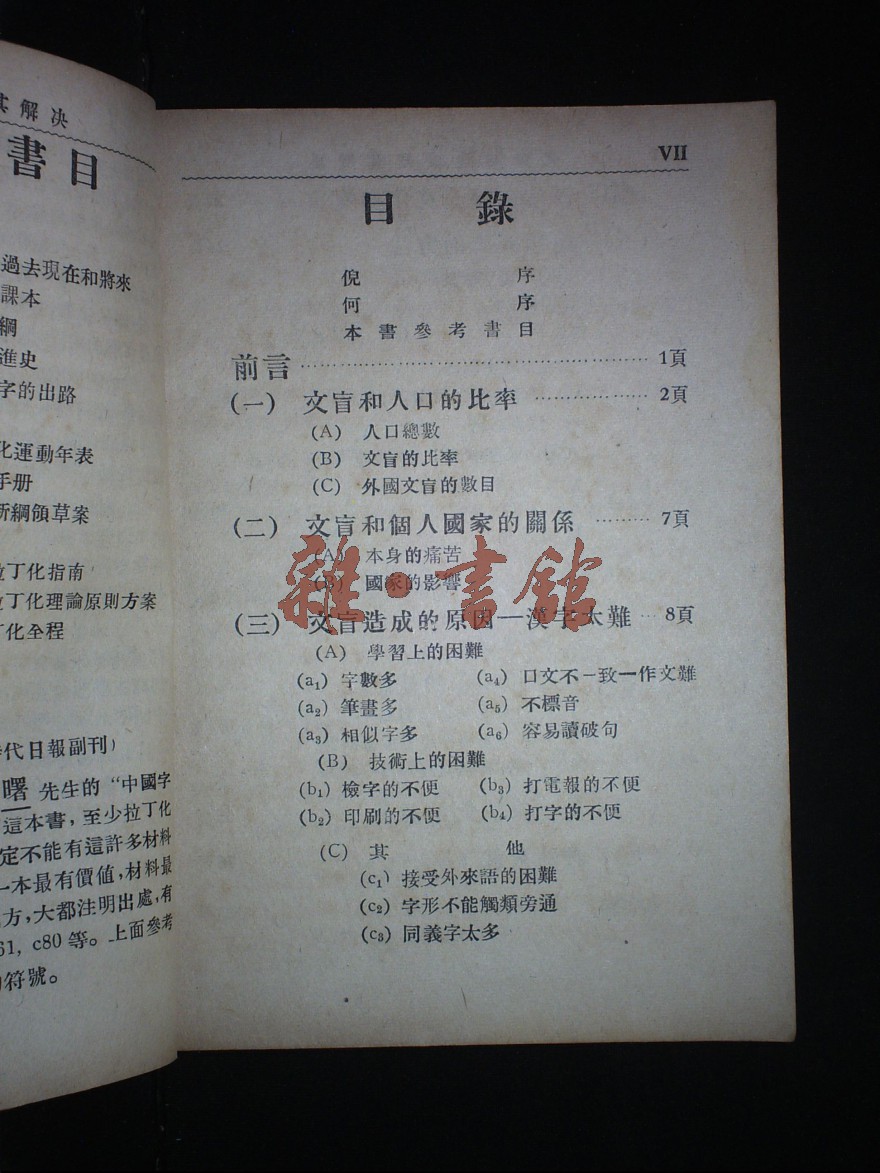 其解決
書目
過去現在和將來
課本
綱
進史
字的出路
化運動年表
手册
新綱領草案
拉丁化指南
拉丁化理論原則方案
丁化全程
代日報副刊)
曙 先生的 “中國字
這本書，至少拉丁化
定不能有這許多材料
一本最有價值，材料最
方，大都注明出處，有
61, c80 等。上面參考
符號。
VII
目 錄
倪 序
何 序
本書參考書目
前言……………………………………1頁
(一) 文盲和人口的比率………………2頁
(A) 人口總數
(B) 文盲的比率
(C) 外國文盲的數目
(二) 文盲和個人國家的關係………7頁
(A) 本身的痛苦
(B) 國家的影響
雜·書館
(三) 文盲造成的原因—漢字太難…8頁
(A) 學習上的困難
(a1) 字數多 (a4) 口文不一致—作文難
(a2) 筆畫多 (a5) 不標音
(a3) 相似字多 (a6) 容易讀破句
(B) 技術上的困難
(b1) 檢字的不便 (b3) 打電報的不便
(b2) 印刷的不便 (b4) 打字的不便
(C) 其 他
(c1) 接受外來語的困難
(c2) 字形不能觸類旁通
(c3) 同義字太多